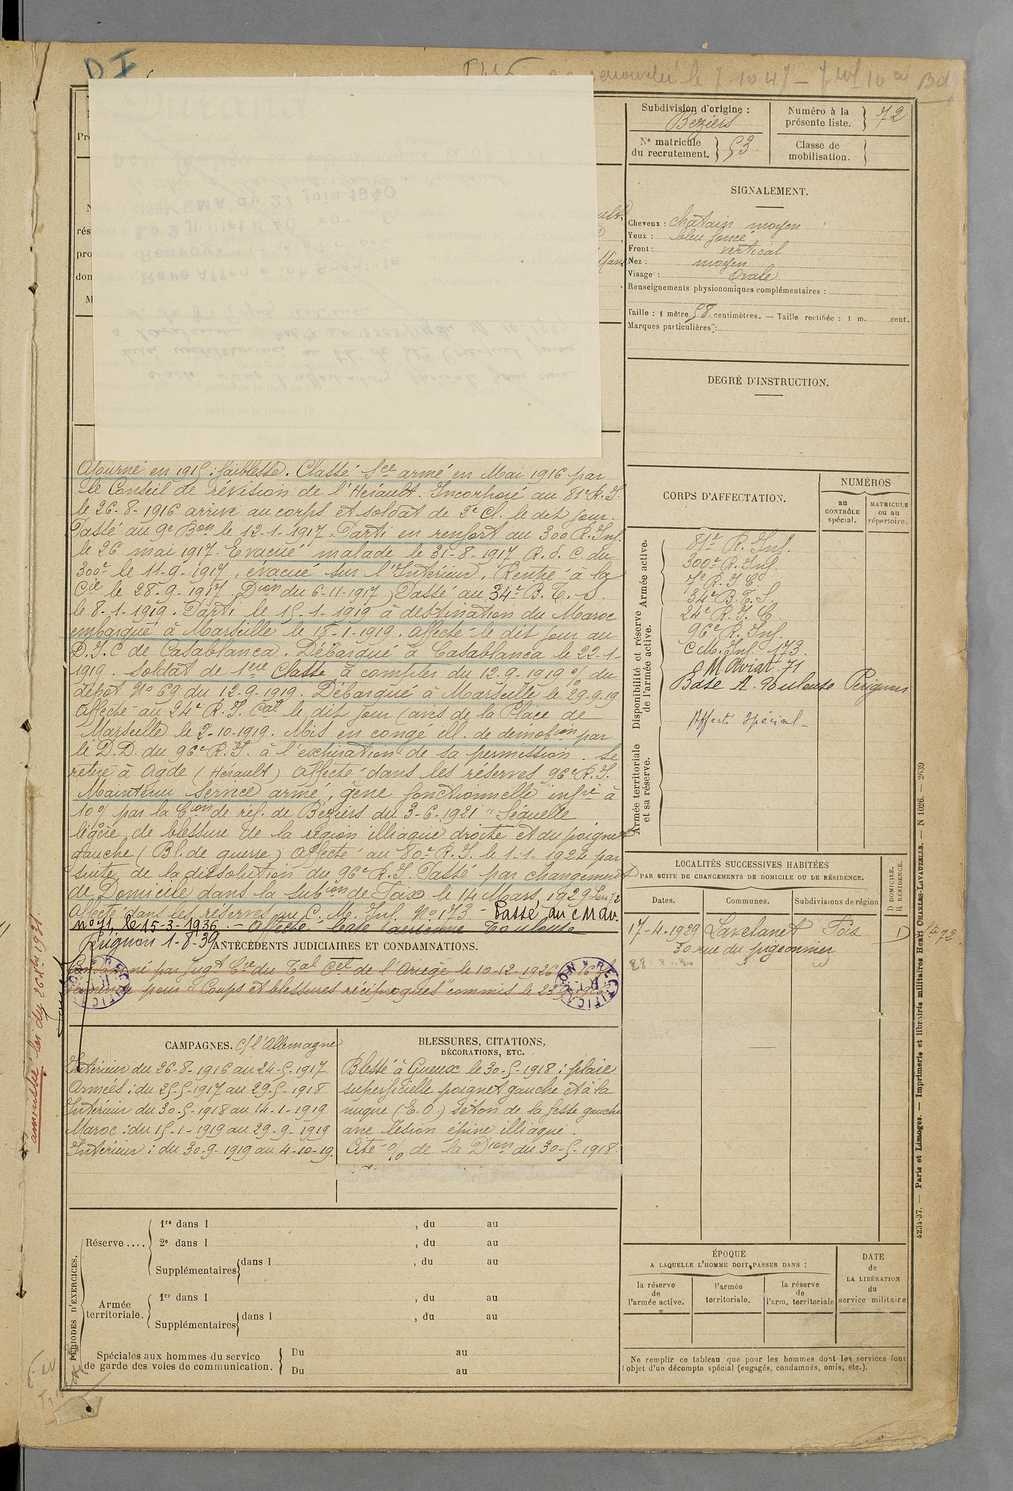 DI
renouvelée le 7-10 47
Subdivision d'origine :
Béziers
Numéro à la présente liste. 72
N° matricule du recrutement. 53
Classe de mobilisation.
SIGNALEMENT.
Cheveux : châtain moyen
Yeux : bleu foncé
Front : vertical
Nez : moyen
Visage : Ovale
Renseignements physionomiques complémentaires :
Taille : 1 mètre 58 centimètres. — Taille rectifiée : 1 m. cent.
Marques particulières :
DEGRÉ D'INSTRUCTION.
Ajourné en 1915 : faiblesse. Classé sce armé en Mai 1916 par
le Conseil de révision de l'Hérault. Incorporé au 81e R.I.
le 26-8-1916 arrivé au corps et soldat de 2e Cl. le dit jour.
Passé au 9e Bon le 12-1-1917. Parti en renfort au 300 R. Inf.
le 26 mai 1917. Evacué malade le 31-8-1917 R. d. C. du
300e le 11-9-1917, évacué sur l'Intérieur. Rentré à la
Cie le 28-9-1917 Don du 6-11-1917 Passé au 34e B.T.S.
le 8-1-1919. Parti le 15-1-1919 à destination du Maroc
embarqué à Marseille le 18-1-1919. Affecté le dit jour au
D.I.C de Casablanca. Débarqué à Casablanca le 22-1-
1919. Soldat de 1ère Classe à compter du 12.9-1919 % du
dépôt No 69 du 12-9-1919. Débarqué à Marseille le 29.9.19
Affecté au 24e R.I. Cal le dit jour (avis de la Place de
Marseille le 2-10-1919. Mis en congé ill. de démobon par
le D.D. du 96e R.I. à l'expiration de sa permission. Se
retire à Agde (Hérault) Affecté dans les réserves 96e R.I.
Maintenu service armé, gêne fonctionnelle infre à
10% par la Con de réf. de Béziers du 3-6-1921 : Séquelle
légère, de blessure de la région illiaque droite et du poignet
gauche (Bl. de guerre) Affecté au 80e R.I. le 1-1-1924 par
suite de la dissolution du 96e R.I. Passé par changement
de Domicile dans la Subon de Foix le 14 Mars 1929
Affecté dans les réserves au C. M. Inf. No 173 - Passé au C M Av.
No 71, le 15-3-1936. - Affecté Base aérienne Toulouse
1-8-39
ANTÉCÉDENTS JUDICIAIRES ET CONDAMNATIONS.
Condamné par Jugt Cre du Tal Cel de l'Ariège le 10-12-1926
pour "Coups et blessures réciproques" commis le 23
RECTIFICATION
RECTIFICATION
amnistié loi du 26 Xbre 1931
CAMPAGNES. C/ l'Allemagne
Intérieur du 26-8-1916 au 24-5-1917
Armées : du 25-5-1917 au 29-5-1918
Intérieur du 30-5-1918 au 14-1-1919
Maroc : du 15-1-1919 au 29-9-1919
Intérieur : du 30-9-1919 au 4-10-19.
BLESSURES, CITATIONS,
DÉCORATIONS, ETC.
Blessé à Gueux le 30-5-1918 : plaie
superficielle poignet gauche et à la
nuque (E. O.) Séton de la fesse gauche
avec lésion épine illiaque.
Cité % de la Don du 30-5-1918.
CORPS D'AFFECTATION.
NUMÉROS
au CONTRÔLE spécial.
MATRICULE ou au répertoire.
Disponibilité et réserve de l'armée active. Armée active.
Armée territoriale et sa réserve.
81e R. Inf.
300e R. Inf.
7e R.I.C
34e B.T.S.
24e R.I.C
96e R. Inf.
C.M. Inf. 173.
C M Aviat. 71
Base A. Toulouse
Affect. Spécial -
LOCALITÉS SUCCESSIVES HABITÉES
PAR SUITE DE CHANGEMENTS DE DOMICILE OU DE RÉSIDENCE.
Dates.
Communes.
Subdivisions de région
D DOMICILE.
R RÉSIDENCE.
17-4-1929 Lavelanet Foix D
30 rue du pigeonnier
PÉRIODES D'EXERCICES.
Réserve....
1re dans l , du au
2e dans l , du au
Supplémentaires dans l , du au
Armée territoriale.
1re dans l , du au
Supplémentaires dans l , du au
Spéciales aux hommes du service de garde des voies de communication.
Du au
Du au
ÉPOQUE
A LAQUELLE L'HOMME DOIT PASSER DANS :
la réserve de l'armée active.
l'armée territoriale.
la réserve de l'arm. territoriale
DATE de LA LIBÉRATION du service militaire
Ne remplir ce tableau que pour les hommes dont les services font
l'objet d'un décompte spécial (engagés, condamnés, omis, etc.).
4234-37. — Paris et Limoges. — Imprimerie et librairie militaires Henri CHARLES-LAVAUZELLE. — N 1026. — 2639